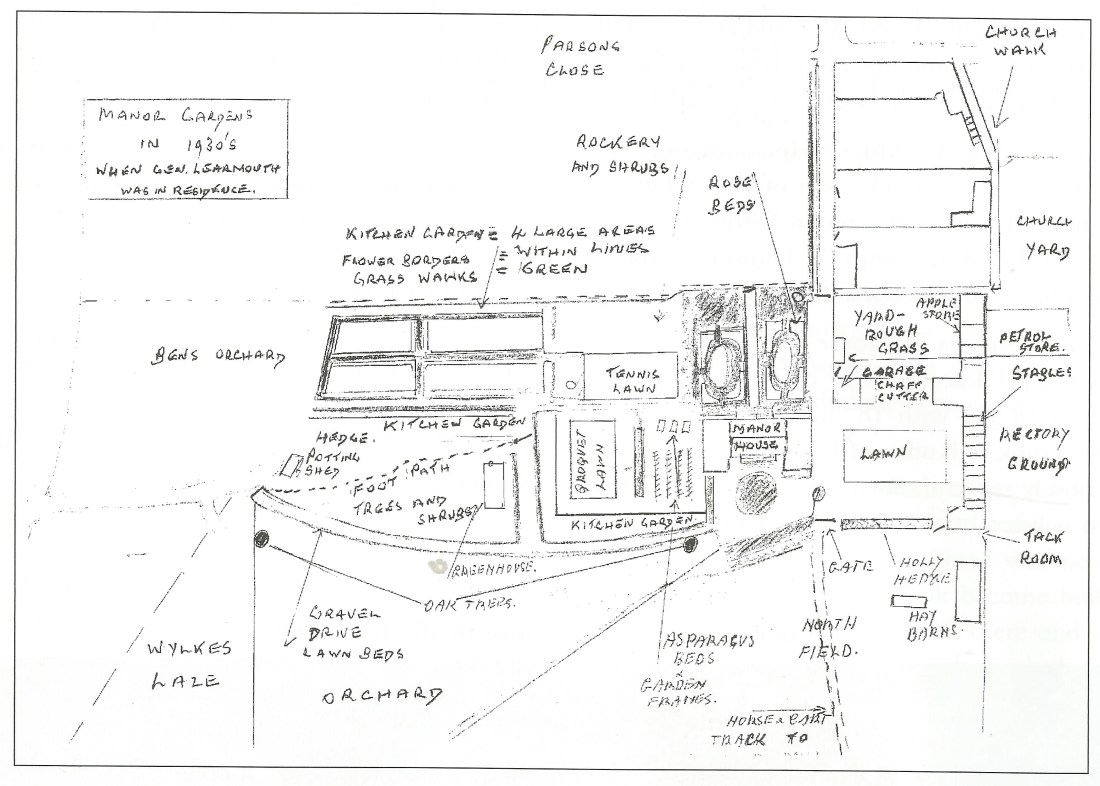 PARSONS
CLOSE
CHURCH
WALK
MANOR GARDENS
IN 1930'S
WHEN GEN. LEARMOUTH
WAS IN RESIDENCE.
ROCKERY
AND SHRUBS
ROSE
BEDS
KITCHEN GARDEN = 4 LARGE AREAS
FLOWER BORDERS = WITHIN LINES
GRASS WALKS = GREEN
CHURCH
YARD
BENS ORCHARD
TENNIS
LAWN
YARD-
ROUGH
GRASS
APPLE
STORE
PETROL
STORE.
GARAGE
CHAFF
CUTTER
STABLES
KITCHEN GARDEN
HEDGE.
POTTING
SHED
FOOT PATH
TREES AND
SHRUBS
CROQUET
LAWN
MANOR
HOUSE
LAWN
RECTORY
GROUNDS
KITCHEN GARDEN
GREENHOUSE.
OAK TREES.
GATE
HOLLY
HEDGE
TACK
ROOM
HAY
BARNS.
GRAVEL
DRIVE
LAWN BEDS
WYLKES
ORCHARD
ASPARAGUS
BEDS
&
GARDEN
FRAMES.
NORTH
FIELD.
HORSE & CART
TRACK TO